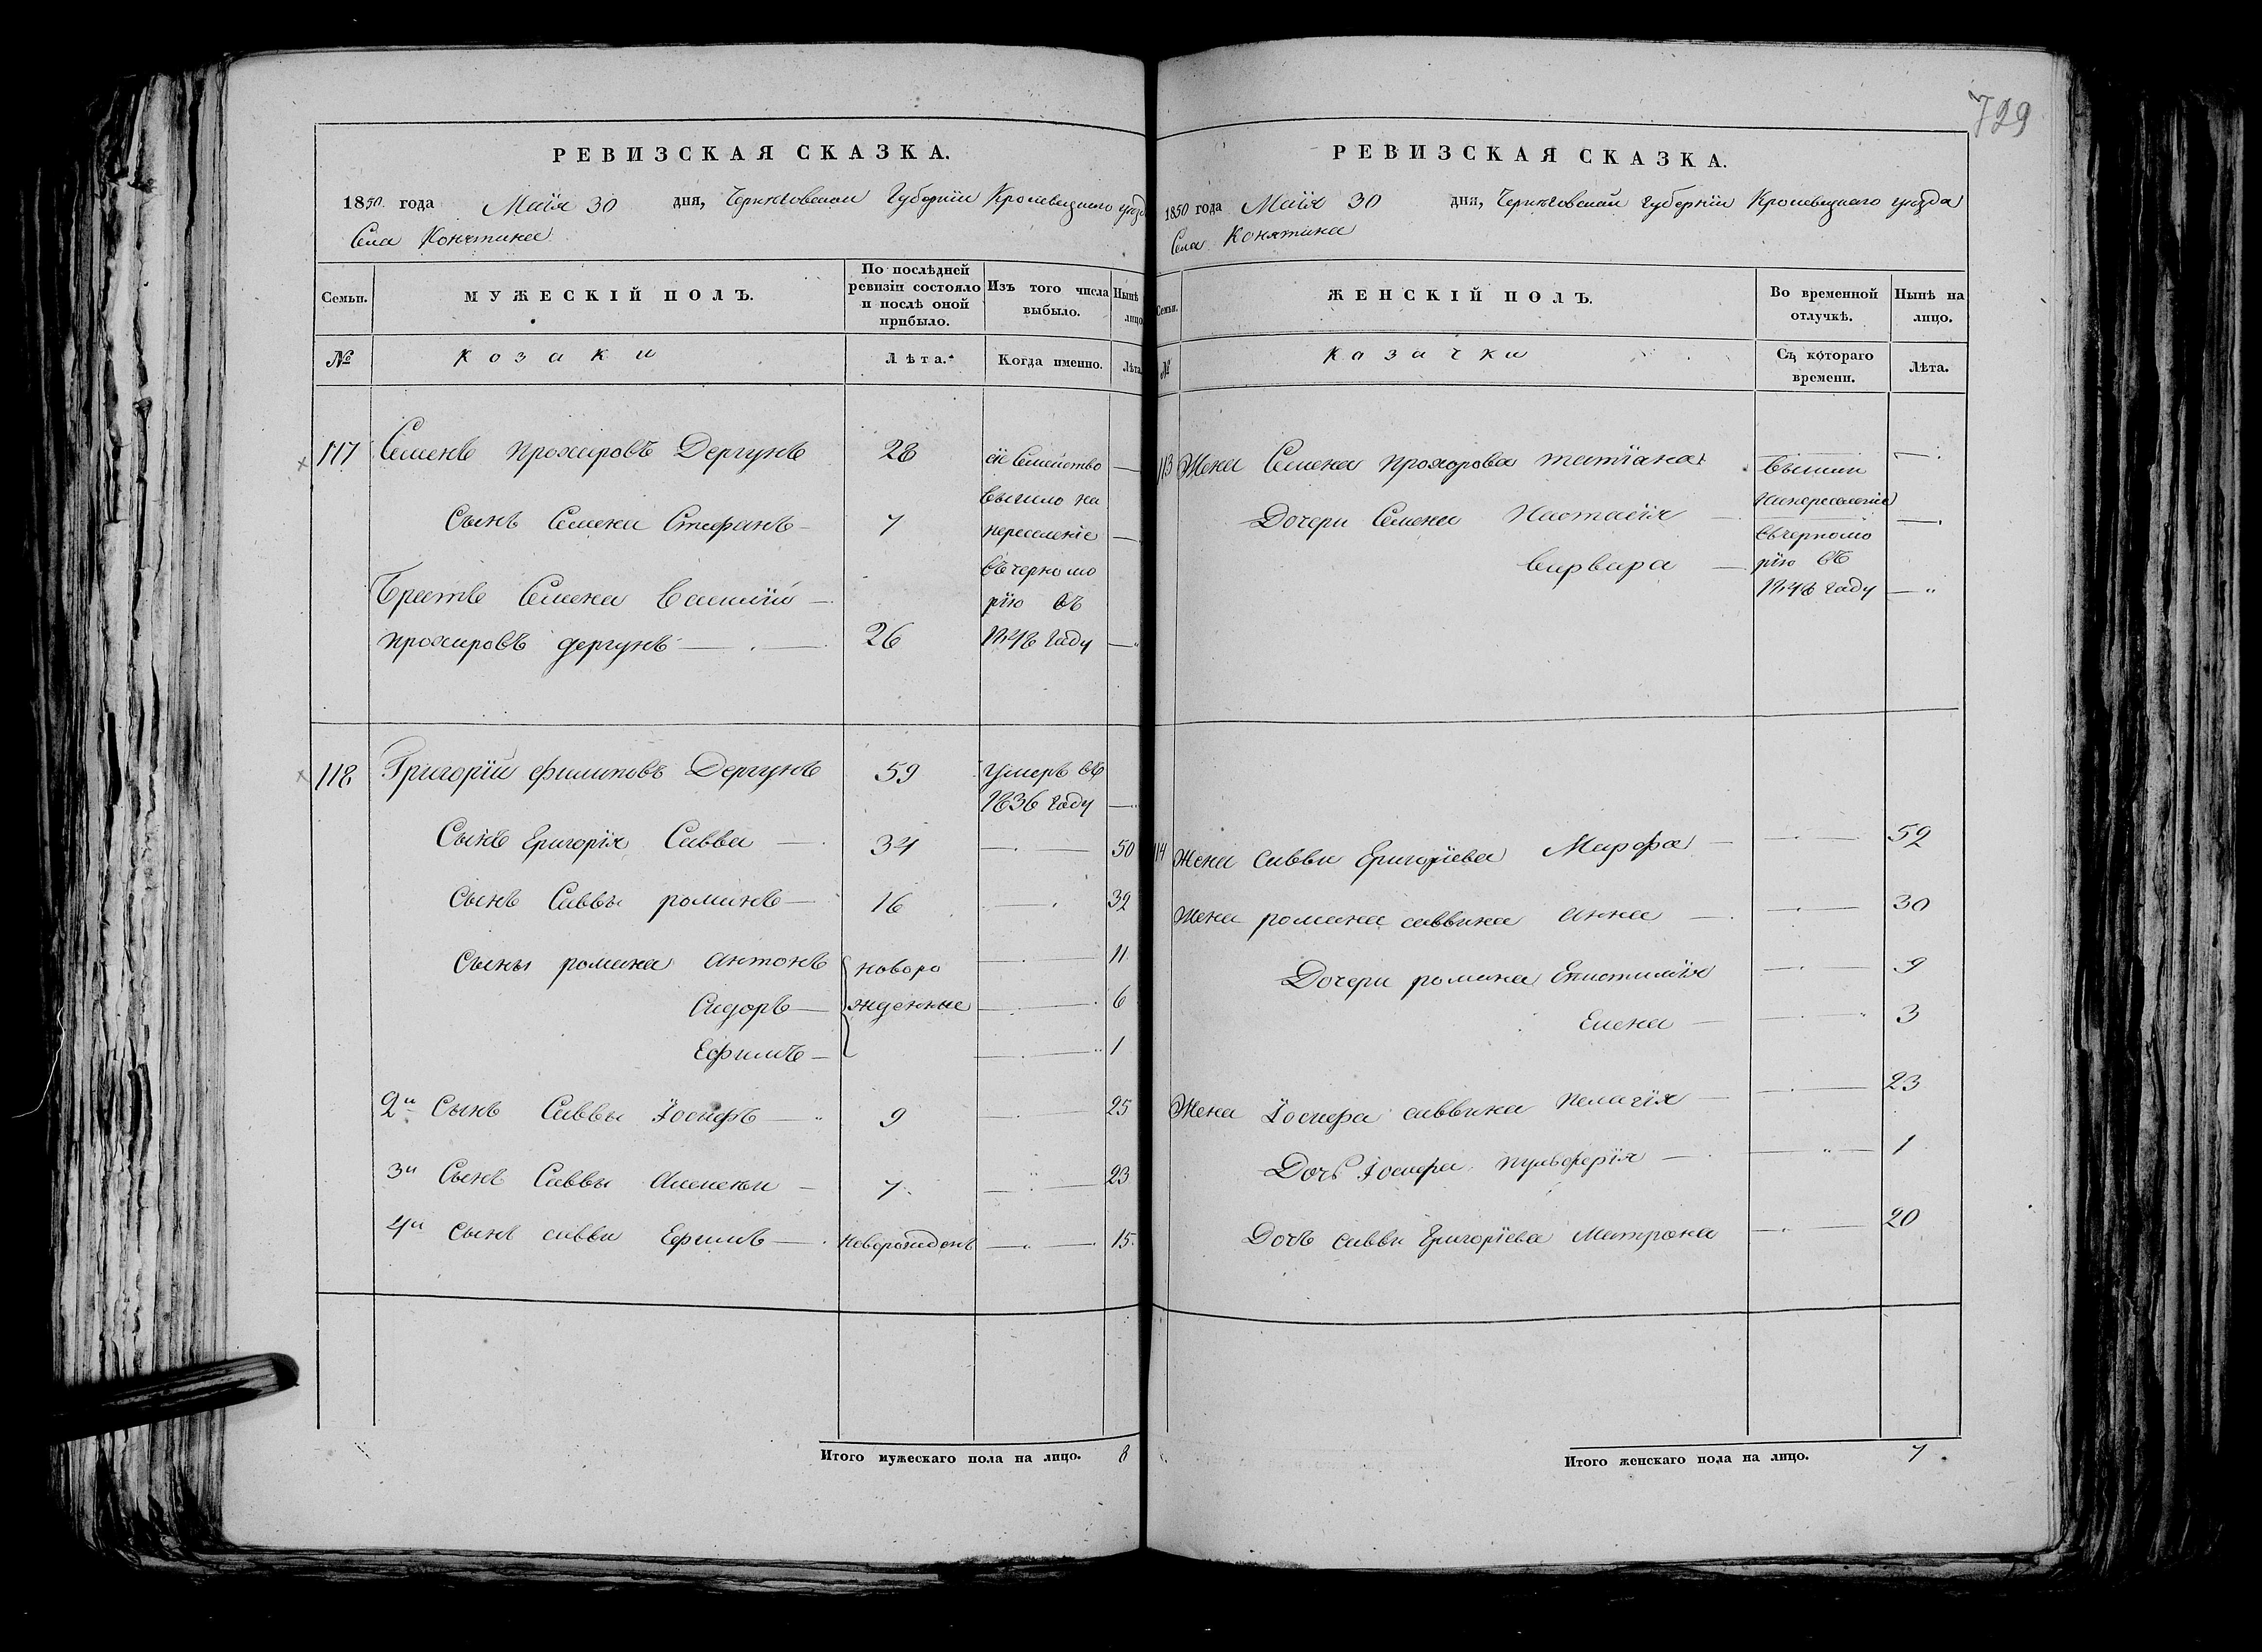 729
РЕВИЗСКАЯ СКАЗКА.
1850 года Маія 30 дня, Черниговской Губерніи Кролевецкаго уезда
Села Конятина
Семьи.
МУЖЕСКІЙ ПОЛЪ.
По послѣдней ревизіи состояло и послѣ оной прибыло.
Изъ того числа выбыло.
Нынѣ лицо
№
Козаки
Лѣта.
Когда именно.
Лѣта.
117 Семенъ Прохоровъ Дергунъ 28 сіе Семейство —
Сынъ Семена Стефанъ — 7 вышло на переселеніе —
Братъ Семена Василій — въ черномо
рію въ
прохоровъ дергунъ — 26 1848 году —
118 Григорій филиповъ Дергунъ 59 Умеръ въ
1836 году —
Сынъ Григорія Савва — 34 — 50
Сынъ Саввы романъ — 16 — 32
Сыны романа антонъ новоро — 11
Сидоръ — жденные — 6
Ефимъ — — 1
2й Сынъ Саввы Іосифъ — 9 — 25
3й Сынъ Саввы Алексѣй — 7 — 23
4й Сынъ саввы Ефимъ — новорожденъ — 15
Итого мужескаго пола на лицо. 8
РЕВИЗСКАЯ СКАЗКА.
1850 года Маія 30 дня, Черниговской губерніи Кролевецкаго уезда
Села Конятина
Семьи.
ЖЕНСКІЙ ПОЛЪ.
Во временной отлучкѣ.
Нынѣ на лицо.
№
Казачки
Съ котораго времени.
Лѣта.
113 Жена Семена прохорова татіана вышли —
Дочери Семена Настасія — напереселеніе —
въ черномо
варвара — рію въ
1848 году —
114 Жена саввы Григоріева Марфа — — 52
Жена романа саввина анна — — 30
Дочери романа Епистимія — 9
Елена — — 3
Жена Іосифа саввина пелагія — — 23
Дочь Іосифа пульхерія — — 1
Дочь саввы Григоріева Матрона — 20
Итого женскаго пола на лицо. 7